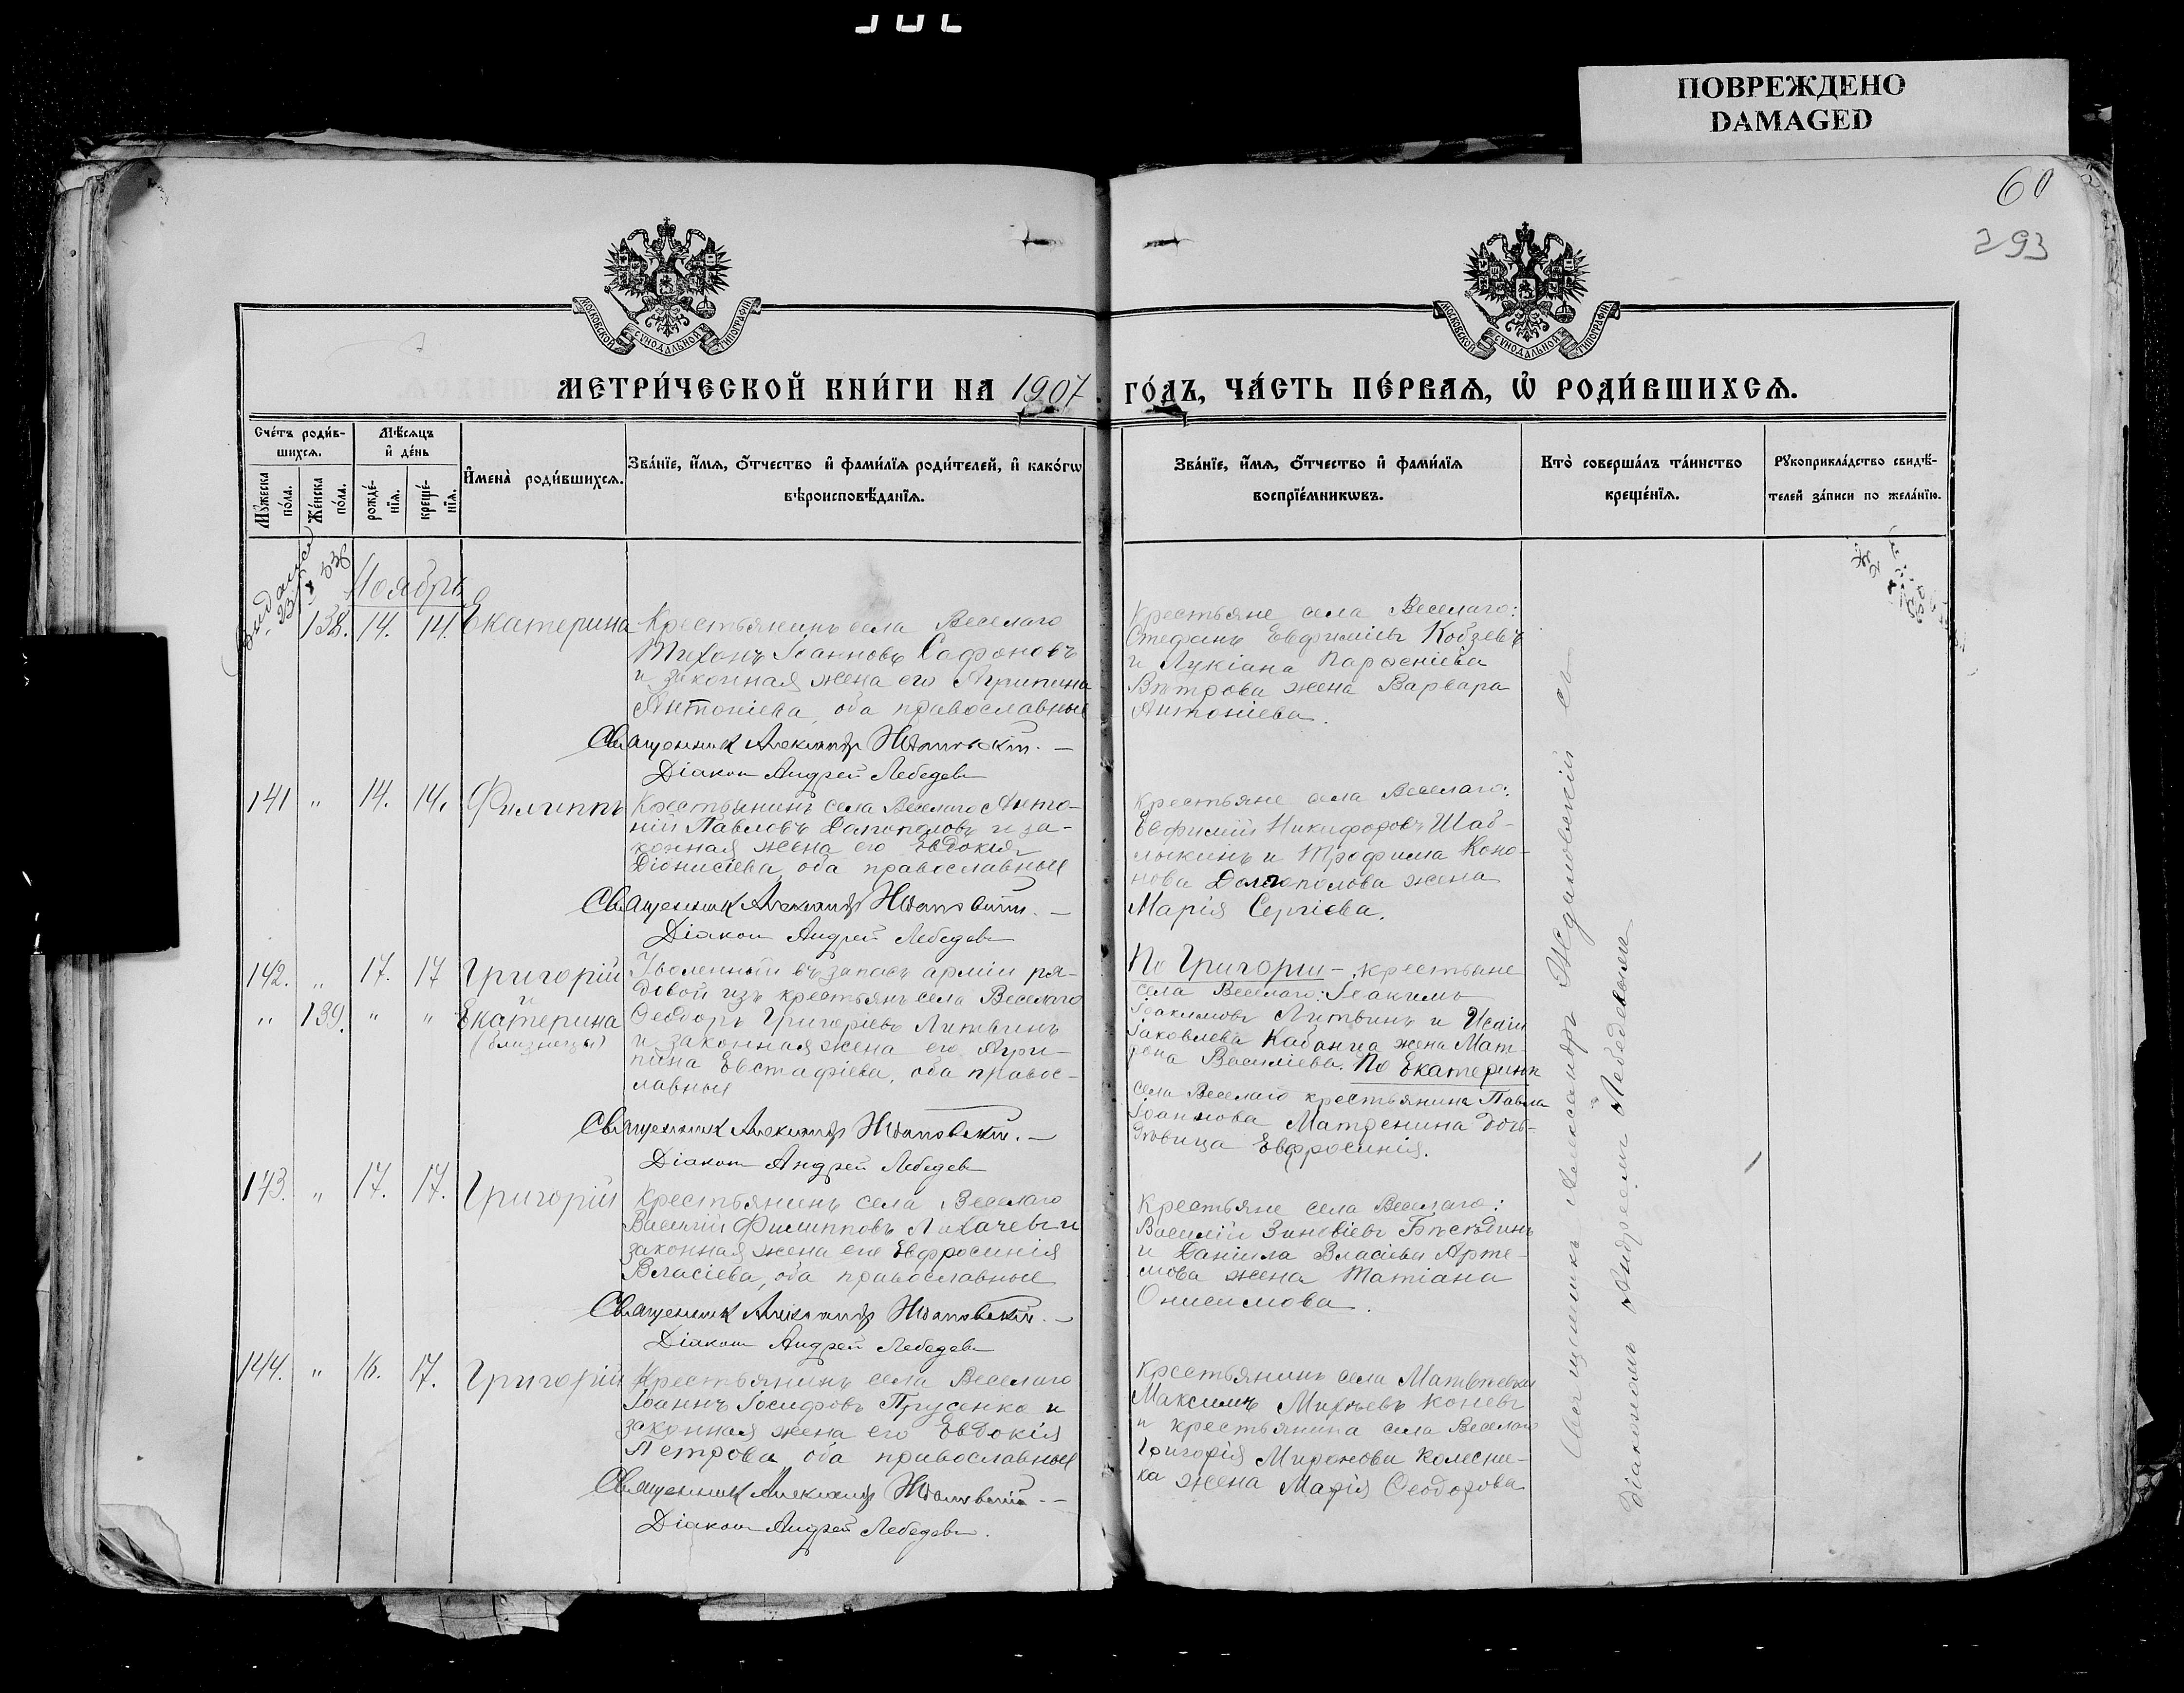 ПОВРЕЖДЕНО
DAMAGED
60
293
МОСКОВСКОЙ СѴНОДАЛЬНОЙ ТИПОГРАФІИ
МОСКОВСКОЙ СѴНОДАЛЬНОЙ ТИПОГРАФІИ
МЕТРИ́ЧЕСКОЙ КНИ́ГИ НА 1907 ГО́ДЪ, ЧА́СТЬ ПЕ́РВАѦ, Ѡ҆ РОДИ́ВШИХСѦ.
Сче́тъ роди́в-
шихсѧ.
Мꙋ́жеска
по́ла.
Же́нска
по́ла.
Мѣ́сѧцъ
и҆ де́нь
рожде́-
нїѧ.
креще́-
нїѧ.
И҆мена̀ роди́вшихсѧ.
Зва́нїе, и҆́мѧ, ѻ҆́тчество и҆ фами́лїѧ роди́телей, и҆ како́гѡ
вѣроисповѣ́данїѧ.
Зва́нїе, и҆́мѧ, ѻ҆́тчество и҆ фами́лїѧ
воспрїе́мникѡвъ.
Кто̀ соверша́лъ та́инство
креще́нїѧ.
Рꙋкоприкла́дство свидѣ́-
телей за́писи по жела́нїю.
Ноябрь
138. 14. 14. Екатерина
Крестьянинъ села Веселаго
Тихонъ Іоанновъ Сафоновъ
и законная жена его Агрипина
Антоніева, оба православные
Священник Александр
Діакон Андрей Лебедев
Крестьяне села Веселаго:
Стефанъ Евфиміевъ Кобзевъ
и Лукіана Парѳеніева
Вѣтрова жена Варвара
Антоніева.
141 " 14. 14. Филиппъ
Крестьянинъ села Веселаго Анто-
ній Павловъ Долгополовъ и за-
конная жена его Евдокія
Діонисіева, оба православные
Священник Александр
Діакон Андрей Лебедев
Крестьяне села Веселаго:
Евфимій Никифоровъ Шаб-
лыкинъ и Трофима Коно-
нова Долгополова жена
Марія Сергіева.
142. " 17. 17 Григорій
и
" 139. " " Екатерина
(близнецы)
Уволенный въ запасъ арміи ря-
довой изъ крестьянъ села Веселаго
Ѳеодоръ Григоріевъ Литвинъ
и законная жена его Агри-
пина Евстафіева, оба правос-
лавные
Священник Александр
Діакон Андрей Лебедев
По Григоріи - крестьяне
села Веселаго: Іоакимъ
Іоакимовъ Литвинъ и Исаіи
Іаковлева Кабанца жена Мат-
рона Василіева. По Екатеринѣ
села Веселаго крестьянина Павла
Іоаннова Матренина дочь-
дѣвица Евфросинія.
143. " 17. 17. Григорій
Крестьянинъ села Веселаго
Василій Филипповъ Лихачевъ и
законная жена его Евфросинія
Власіева, оба православные
Священник Александр
Діакон Андрей Лебедев
Крестьяне села Веселаго:
Василій Зиновіевъ Бѣсѣдинъ
и Даніила Власіева Арте-
мова жена Татіана
Онисимова.
144. " 16. 17. Григорій
Крестьянинъ села Веселаго
Іоаннъ Іосифовъ Прусенко и
законная жена его Евдокія
Петрова оба православные
Священник Александр
Діакон Андрей Лебедев.
Крестьянинъ села Матвѣевки
Максимъ Михѣевъ Коневъ
и крестьянина села Веселаго
Григорія Миронова Колесни-
ка жена Марія Ѳеодорова
Священникъ Александръ съ
діакономъ Андреемъ Лебедевымъ